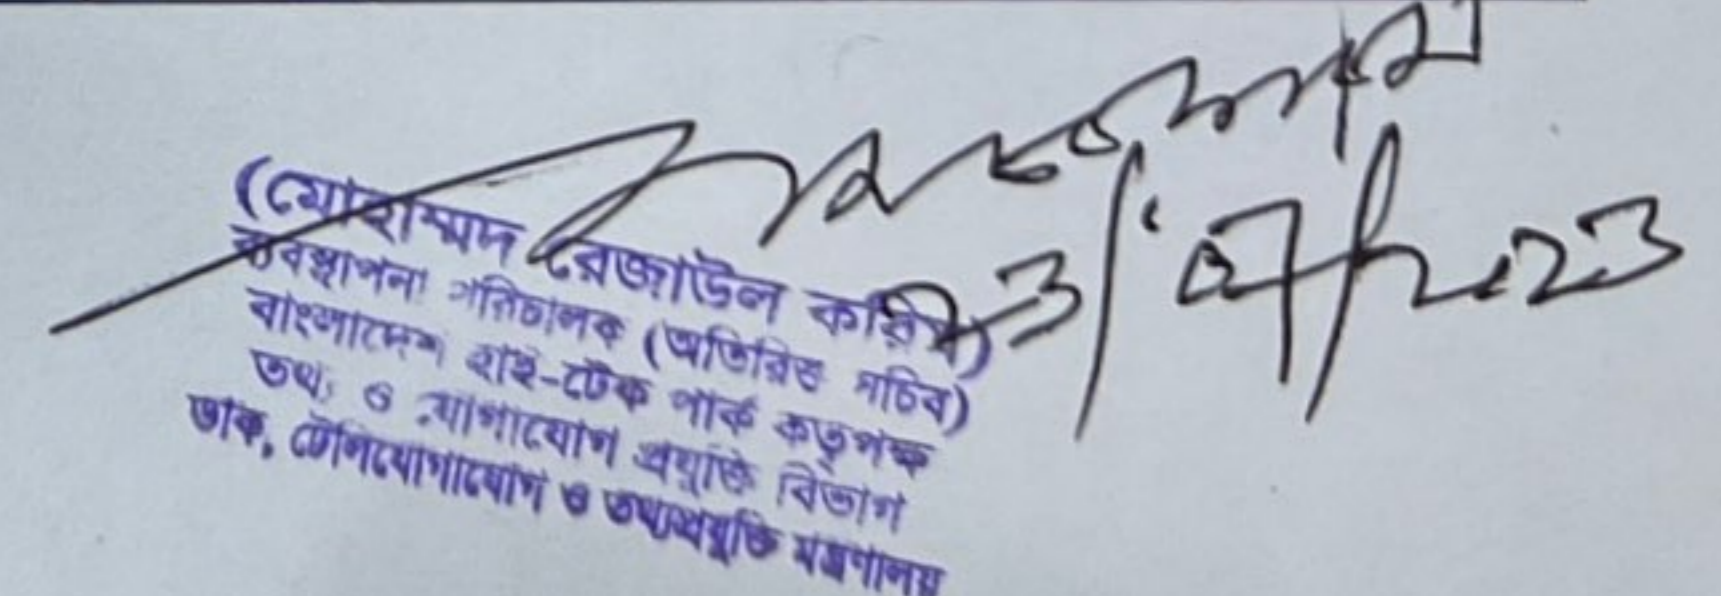 (মোহাম্মদ রেজাউল করিম)
ব্যবস্থাপনা পরিচালক (অতিরিক্ত সচিব)
বাংলাদেশ হাই-টেক পার্ক কর্তৃপক্ষ
তথ্য ও যোগাযোগ প্রযুক্তি বিভাগ
ডাক, টেলিযোগাযোগ ও তথ্যপ্রযুক্তি মন্ত্রণালয়
23/07/2023